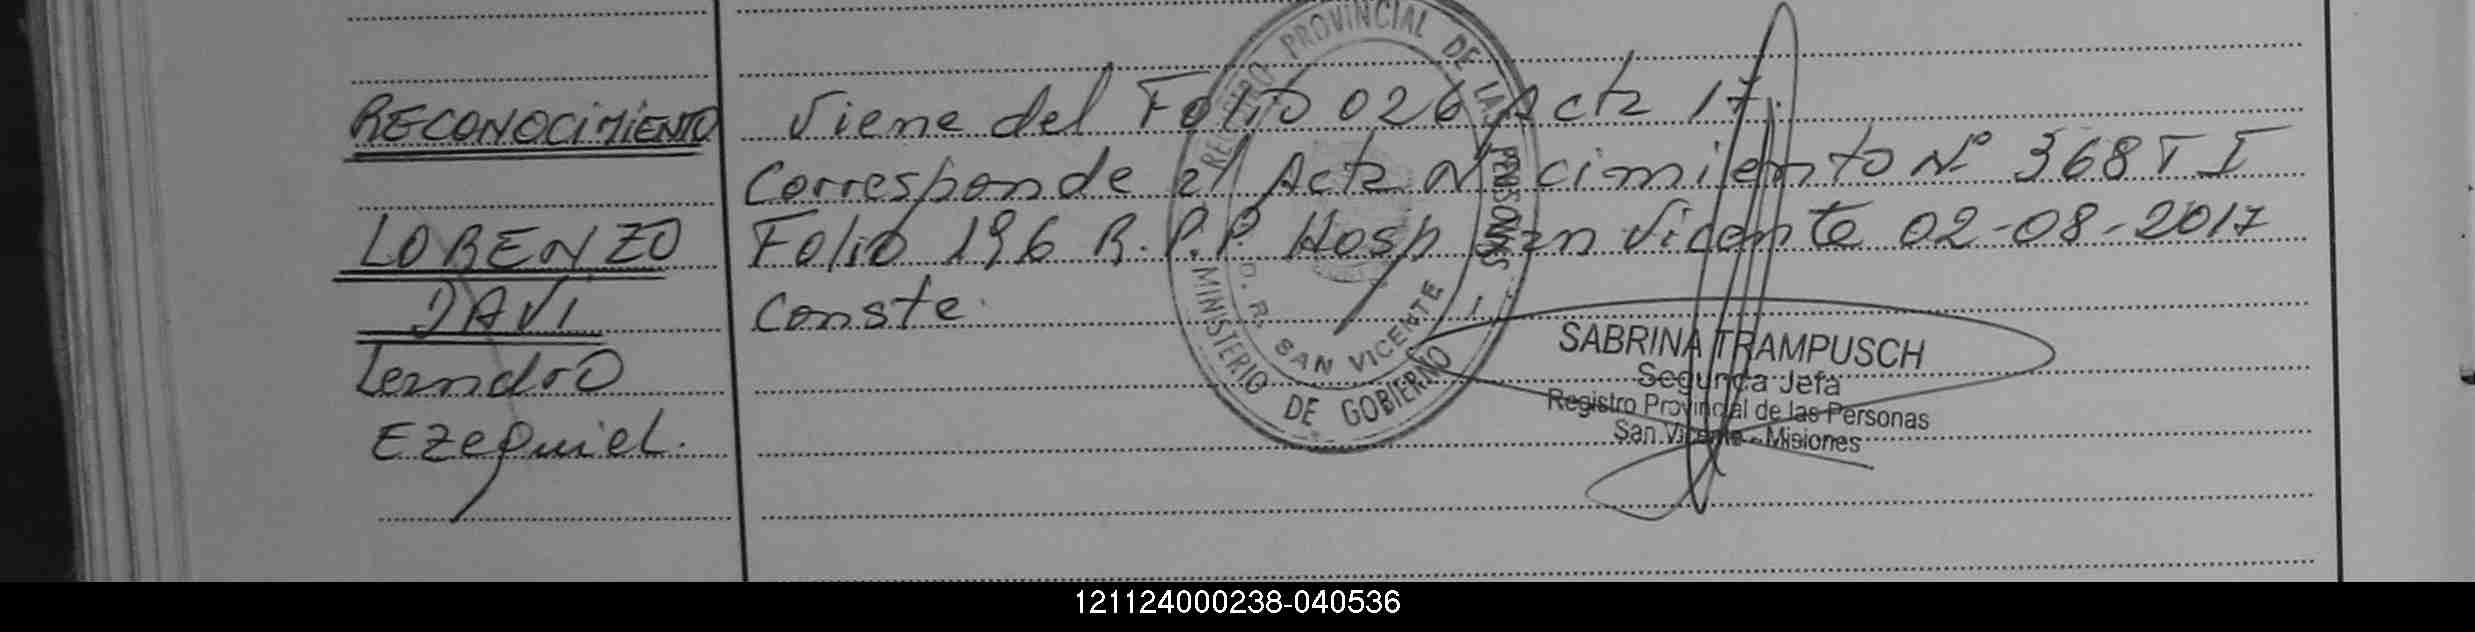 RECONOCIMIENTO
LORENZO
DAVI
Leandro
Ezequiel.
Viene del Folio 026 Acta 17.
Corresponde al Acta Nacimiento Nº 368 T I
Folio 196 R.P.P. Hosp San Vicente 02-08-2017
Conste.
REGISTRO PROVINCIAL DE LAS PERSONAS
MINISTERIO DE GOBIERNO
O. R. SAN VICENTE
SABRINA TRAMPUSCH
Segunda Jefa
Registro Provincial de las Personas
San Vicente - Misiones
121124000238-040536